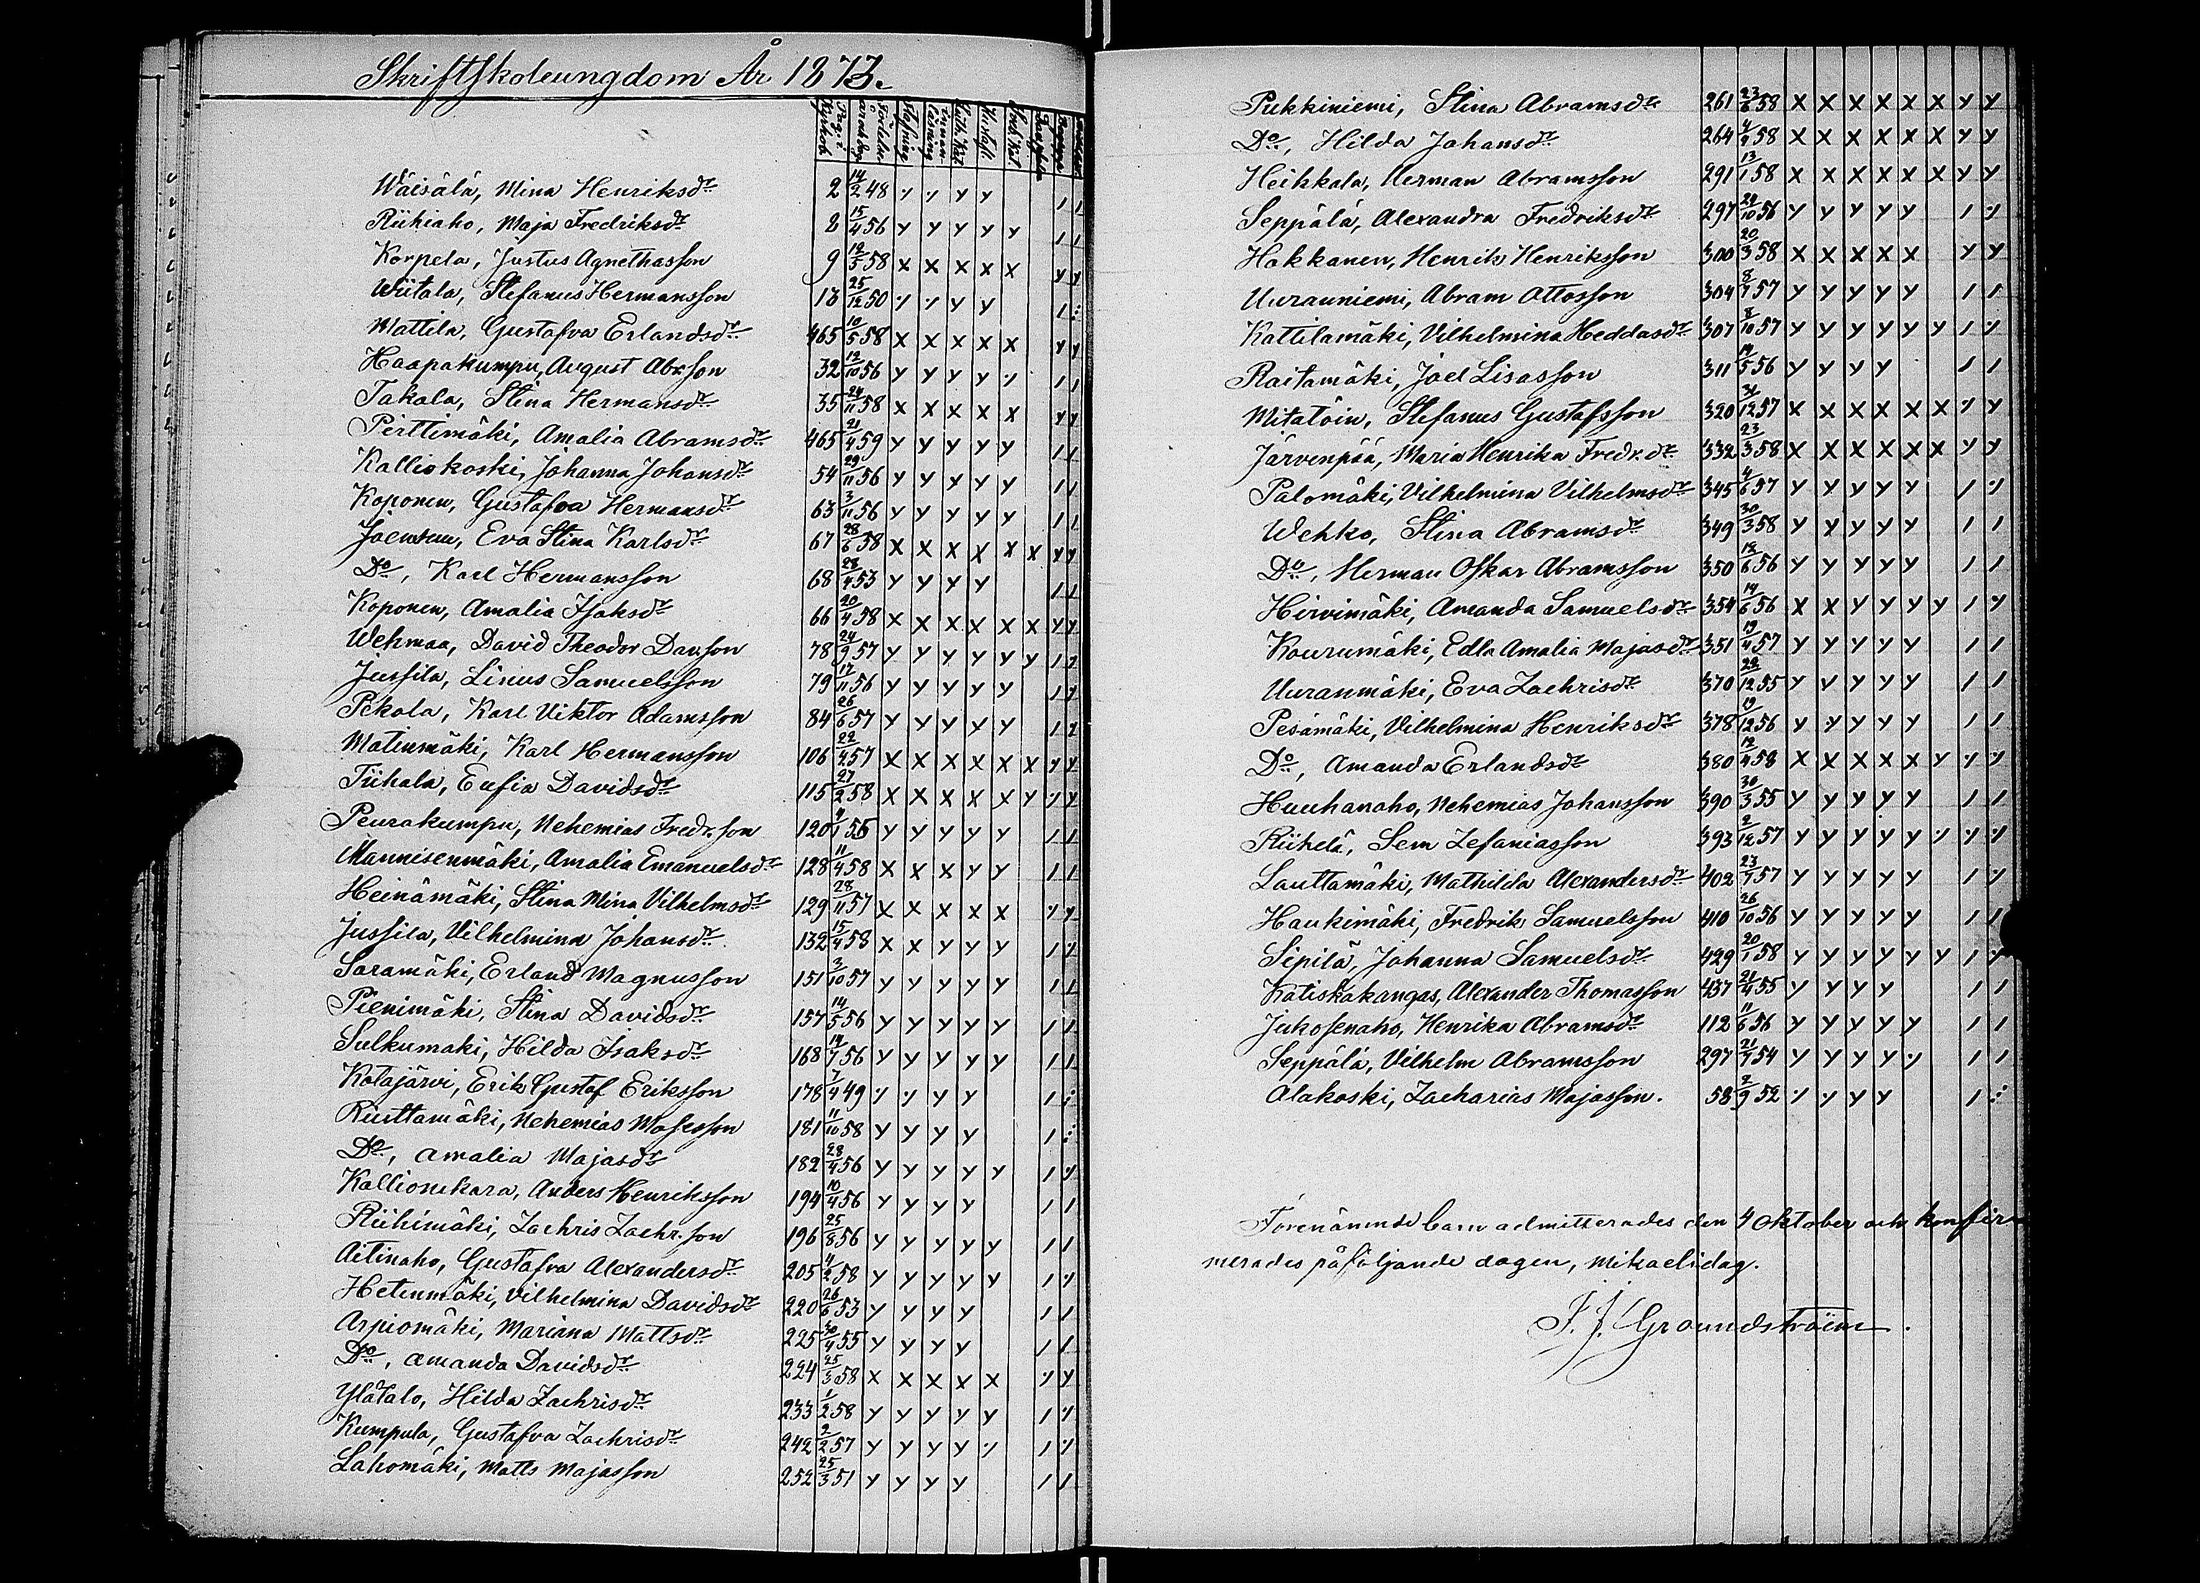 Skriftskoleungdom År 1873.
Wäisälä, Mina Henriksdr 2 14/2 48
Riihiaho, Maja Fredriksdr 2 15/4 56
Korpela, Justus Agnethasson 9 12/5 58
Wiitala, Stefanus Hermansson 13 25/12 50
Mattila, Gustafva Erlandsdr 465 10/5 58
Haapakumpu, August Abr.son 32 12/10 56
Takala, Stina Hermansdr 35 24/11 58
Perttimäki, Amalia Abramsdr 465 21/4 59
Kalliokoski, Johanna Johansdr 54 29/11 56
Koponen, Gustafva Hermansdr 63 3/11 56
Joensuu, Eva Stina Karlsdr 67 28/6 58
Do, Karl Hermansson 68 28/4 53
Koponen, Amalia Isaksdr 66 20/4 58
Wehmaa, David Theodor Dav.son 78 24/9 57
Jussila, Linus Samuelsson 79 17/11 56
Pekola, Karl Viktor Adamsson 84 26/6 57
Matinmäki, Karl Hermansson 106 22/4 57
Tiihala, Eufia Davidsdr 115 27/2 58
Peurakumpu, Nehemias Fredr.son 120 4/1 56
Mannisenmäki, Amalia Emanuelsdr 128 11/4 58
Heinämäki, Stina Mina Vilhelmsdr 129 28/11 57
Jussila, Vilhelmina Johansdr 132 15/4 58
Saramäki, Erland Magnusson 151 3/10 57
Pienimäki, Stina Davidsdr 157 14/5 56
Sulkumaki, Hilda Isaksdr 168 14/7 56
Kotajärvi, Erik Gustaf Eriksson 178 7/4 49
Riuttamäki, Nehemias Mosesson 181 11/10 58
Do, Amalia Majasdr 182 28/4 56
Kallionikara, Anders Henriksson 194 10/4 56
Riihimäki, Zachris Zachr.son 196 25/8 56
Aitinaho, Gustafva Alexandersdr 205 4/2 58
Hetinmäki, Vilhelmina Davidsdr 220 26/6 53
Arpiomäki, Mariana Mattsdr 225 30/4 55
Do, Amanda Davidsdr 224 25/3 58
Ylätalo, Hilda Zachrisdr 233 1/2 58
Kumpula, Gustafva Zachrisdr 242 2/2 57
Lahomäki, Matts Majasson 252 25/3 51
Pukkiniemi, Stina Abramsdr 261 23/6 58
Do, Hilda Johansdr 264 4/2 58
Heikkala, Herman Abramsson 291 13/1 58
Seppälä, Alexandra Fredriksdr 297 24/10 56
Hakkanen, Henrik Henriksson 300 20/3 58
Uurauniemi, Abram Ottosson 304 8/7 57
Kattilamäki, Vilhelmina Heddasdr 307 8/10 57
Raitamäki, Joel Lisasson 311 19/5 56
Mitatöin, Stefanus Gustafsson 320 31/12 57
Järvenpää, Maria Henrika Fredr.dr 332 23/3 58
Palomäki, Vilhelmina Vilhelmsdr 345 4/6 57
Wehko, Stina Abramsdr 349 30/3 58
Do, Herman Oskar Abramsson 350 18/6 56
Hirvimäki, Amanda Samuelsdr 354 14/6 56
Kourumäki, Edla Amalia Majasdr 351 19/4 57
Uuranmäki, Eva Zachrisdr 370 28/12 55
Pesämäki, Vilhelmina Henriksdr 378 19/12 56
Do, Amanda Erlandsdr 380 12/4 58
Huuhanaho, Nehemias Johansson 390 30/3 55
Riihelä, Sem Zefaniasson 393 2/12 57
Lauttamäki, Mathilda Alexandersdr 402 23/7 57
Haukimäki, Fredrik Samuelsson 410 26/10 56
Sipilä, Johanna Samuelsdr 429 20/1 58
Katiskakangas, Alexander Thomasson 437 21/4 55
Juhosenaho, Henrika Abramsdr 112 11/6 56
Seppälä, Vilhelm Abramsson 297 21/7 54
Alakoski, Zacharias Majasson. 58 2/9 52
Förenämnde barn admitterades den 4 Oktober och konfir-
merades påföljande dagen, Mikaelidag.
J. J. Groundström.